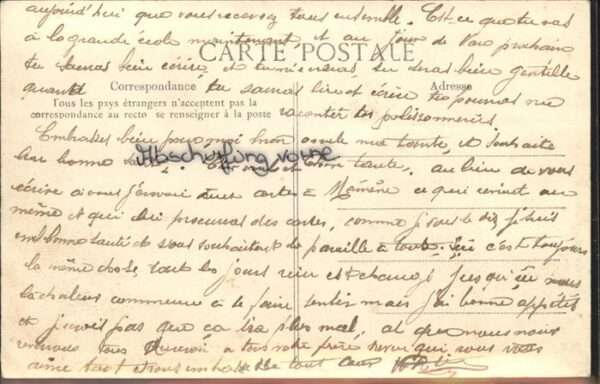 aujourd'hui que vous recevez tous ensemble. Est-ce que tu vas
à la grande école maintenant et au jour de l'an prochain
CARTE POSTALE
tu sauras bien écrire, et tu m'écriras, tu seras bien gentille
Correspondance
Adresse
quand tu sauras lire et écrire tu pourras me
Tous les pays étrangers n'acceptent pas la
correspondance au recto se renseigner à la poste
raconter tes polissonneries
Embrasses bien pour moi mon oncle ma tante, et souhaite
leur bonne
Abschöpfung vorne
tante. au lieu de vous
écrire à vous j'envoie une carte à Mémère ce qui revient au
même et qui lui procurera des cartes, comme je vous le dis je suis
en bonne santé et vous souhaitant la pareille à tous. Ici c'est toujours
la même chose, tout les jours rien est changé jusqu'ici nous
la chaleur commence à se faire sentir mais j'ai bonne appétit
et j'avais pas que ça ira plus mal, et que nous nous
reverrons tous à tous votre frère, neveu qui vous
aime tant et vous embrasse de tout cœur